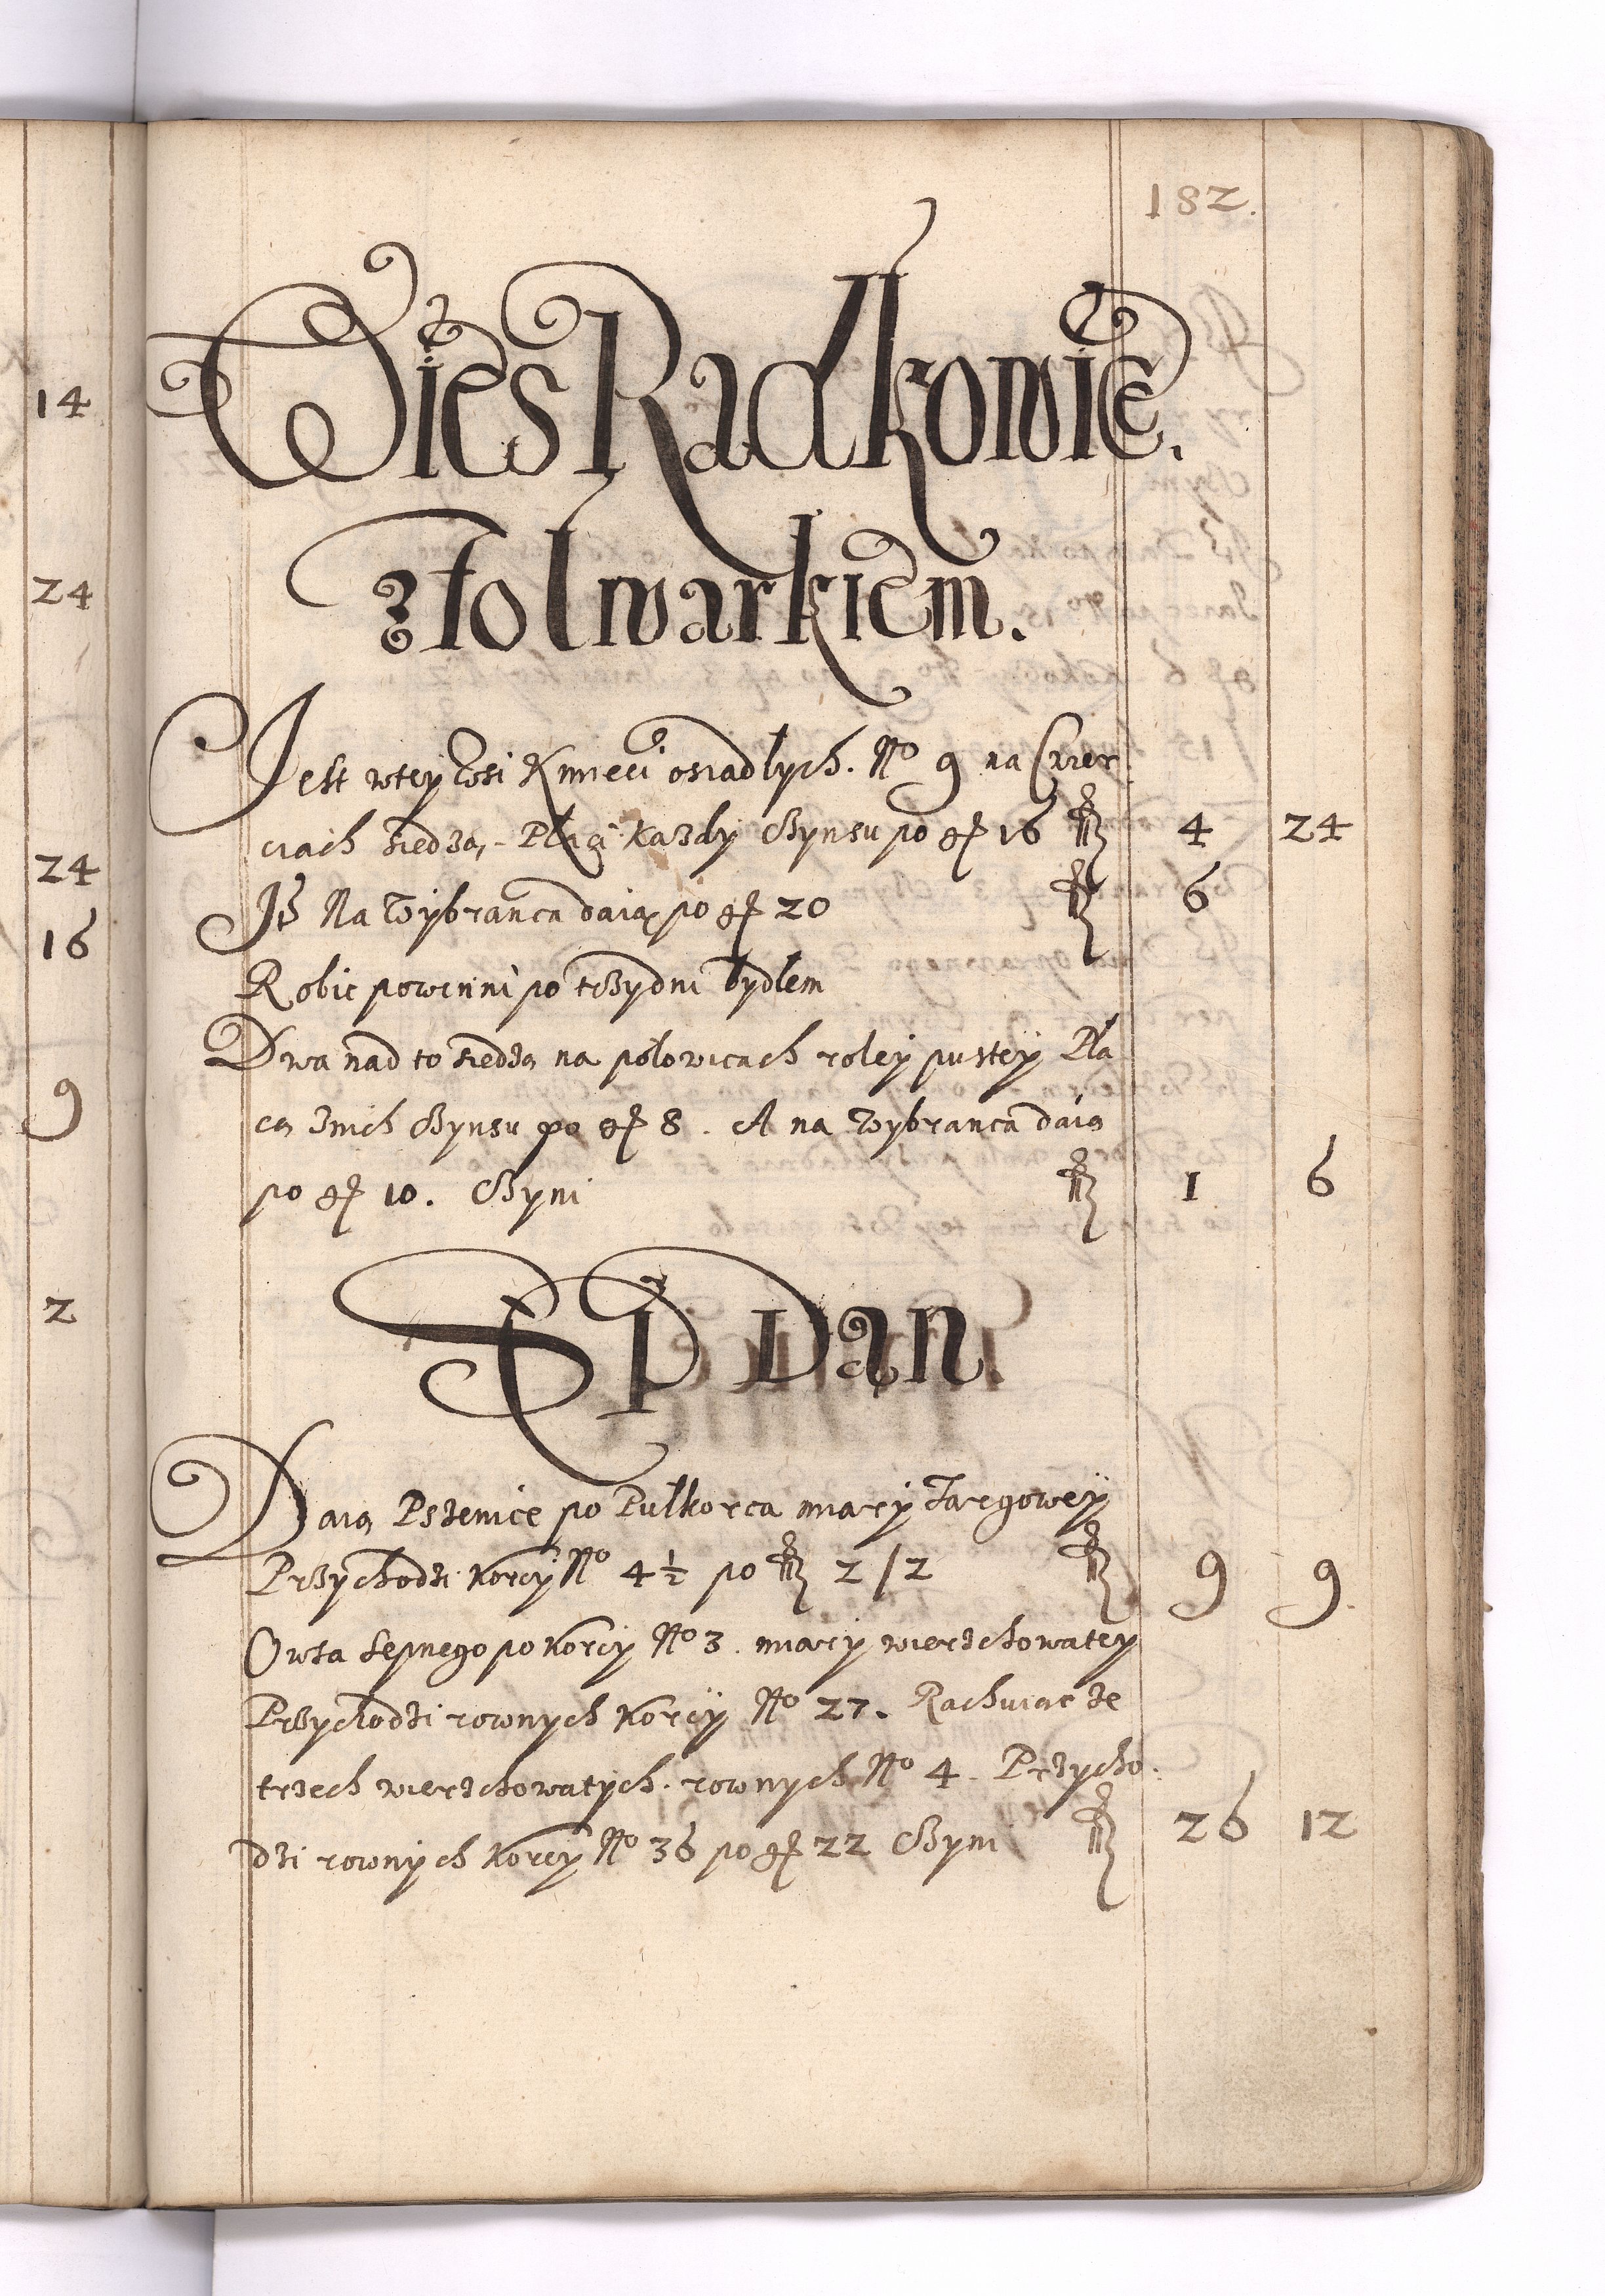 182.
Wies Radkowice.
z folwarkiem.
Jest wtey Wsi Kmieci osiadlych. No 9 na Czwier
ciach siedzą, - Płaci Kazdy Czynsu po gr 16 fl 4 24
Itē Na Wybranca daią po gr 20 fl 6
Robic powinni po trzy dni bydlem
Dwa nad to siedzą na połowicach roley pustey Pła
cą Znich Czynsu po gr 8. A na Wybranca daią
po gr 10. Czyni fl 1 6
Sep Dan.
Daią Pszenice po Pułkorca miary Targowey
Przychodzi Korcy No 4½ po fl 2/2 fl 9 9.
Owsa Sepnego po Korcy No 3. miary wierzchowatey
Przychodzi rownych Korcy No 27. Rachuiąc ze
trzech wierzchowatych. rownych No 4. Przycho
dzi rownych Korcy No 36 po gr 22 Czyni fl 26 12
14
24
24
16
9
2